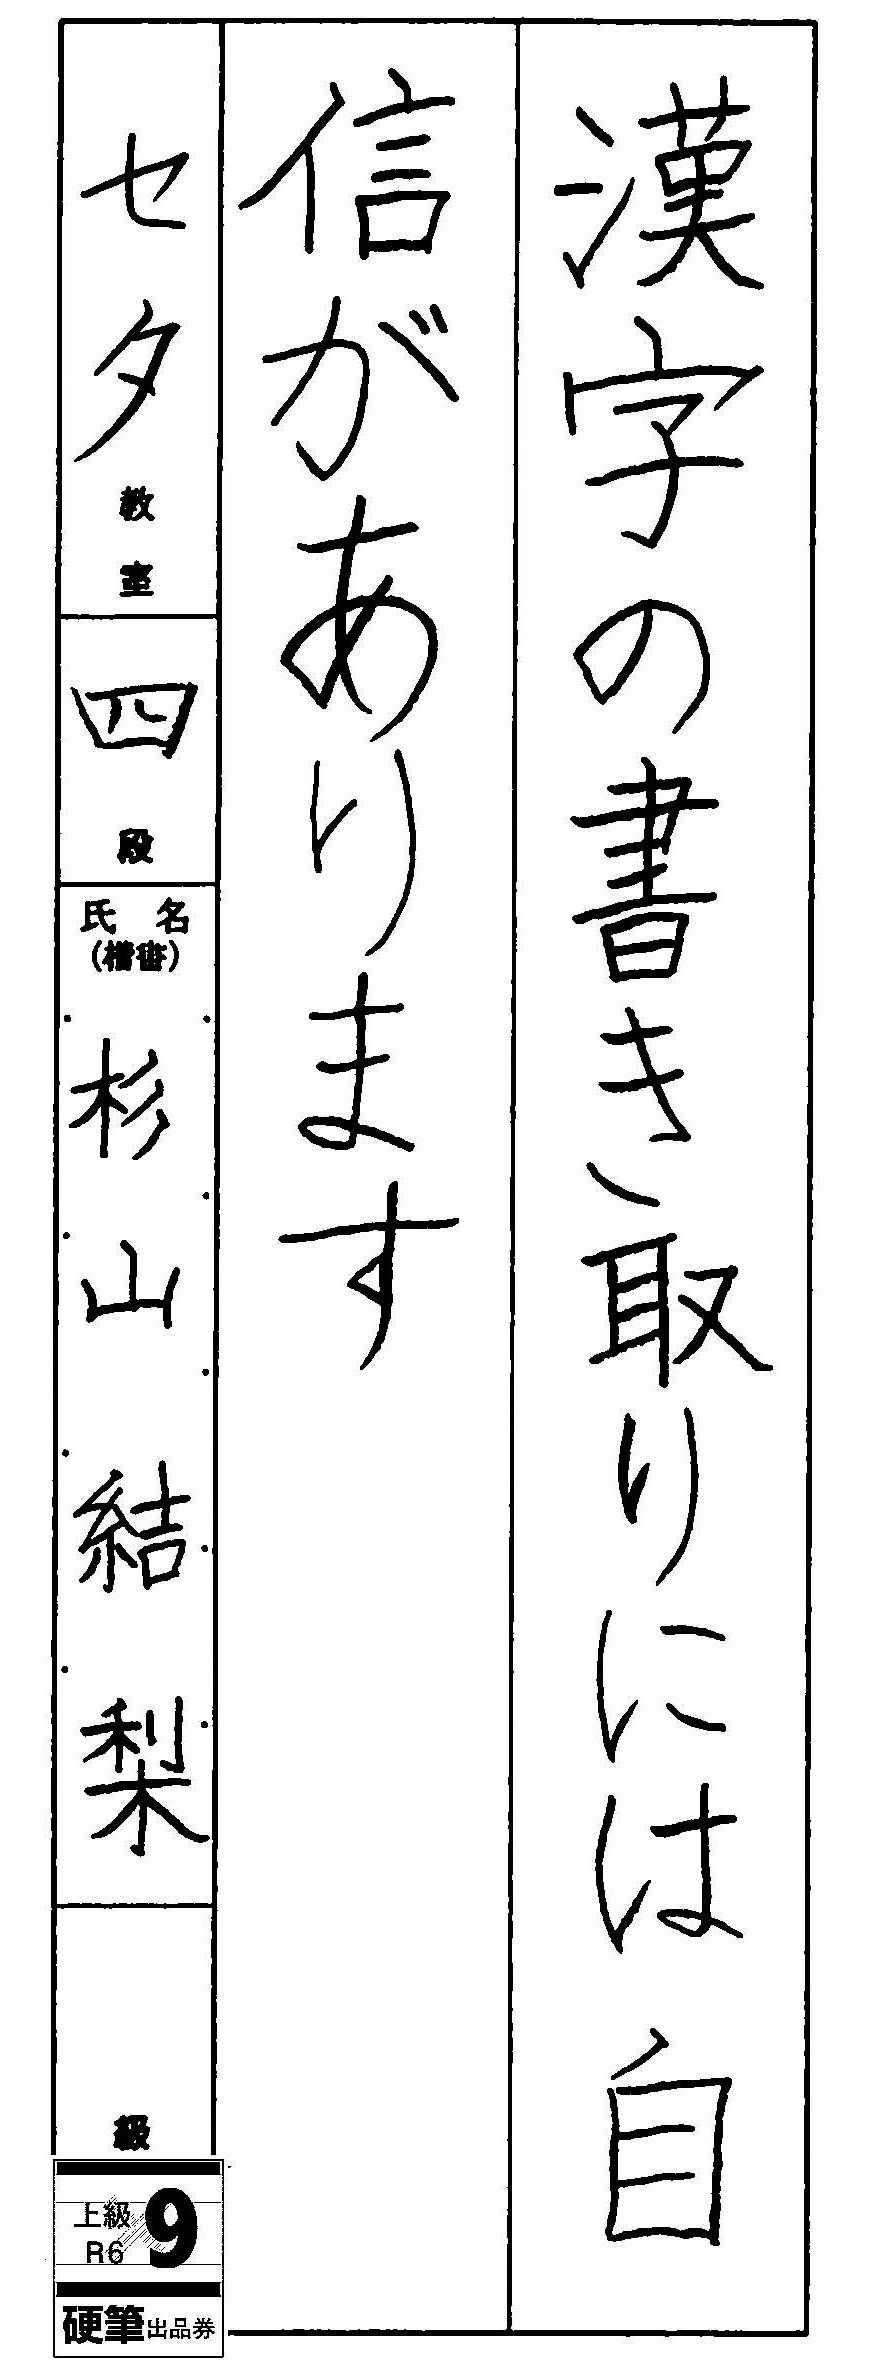 漢字の書き取りには自
信があります
セタ教室
四段
氏名
(楷書)
杉山結梨
級
上級
R6
9
硬筆出品券